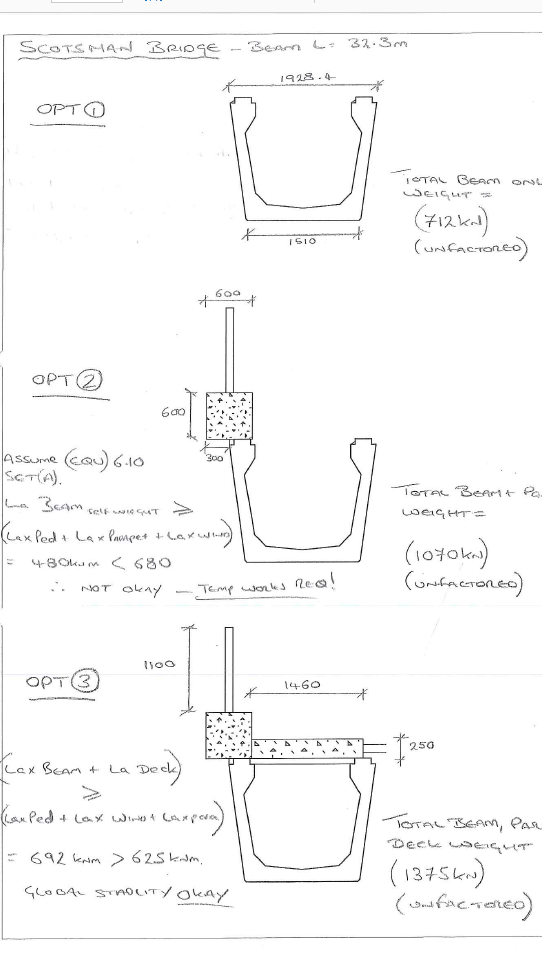 SCOTSMAN BRIDGE - BEAM L= 32.3m
1928.4
OPT 1
TOTAL BEAM ONL
WEIGHT =
(712kN)
(UNFACTORED)
1510
600
OPT 2
600
300
ASSUME (EQU) 6.10
SET(A).
La BEAM SELF WEIGHT ≥
(La x Ped + La x Parapet + La x WIND)
= 480kNm < 680
∴ NOT OKAY - TEMP WORKS REQ!
TOTAL BEAM + PA
WEIGHT =
(1070kN)
(UNFACTORED)
1100
OPT 3
1460
250
(La x BEAM + La Deck)
≥
(La x Ped + La x WIND + La x para)
= 692 kNm > 625 kNm.
GLOBAL STABILITY OKAY
TOTAL BEAM, PAR
DECK WEIGHT
(1375kN)
(UNFACTORED)